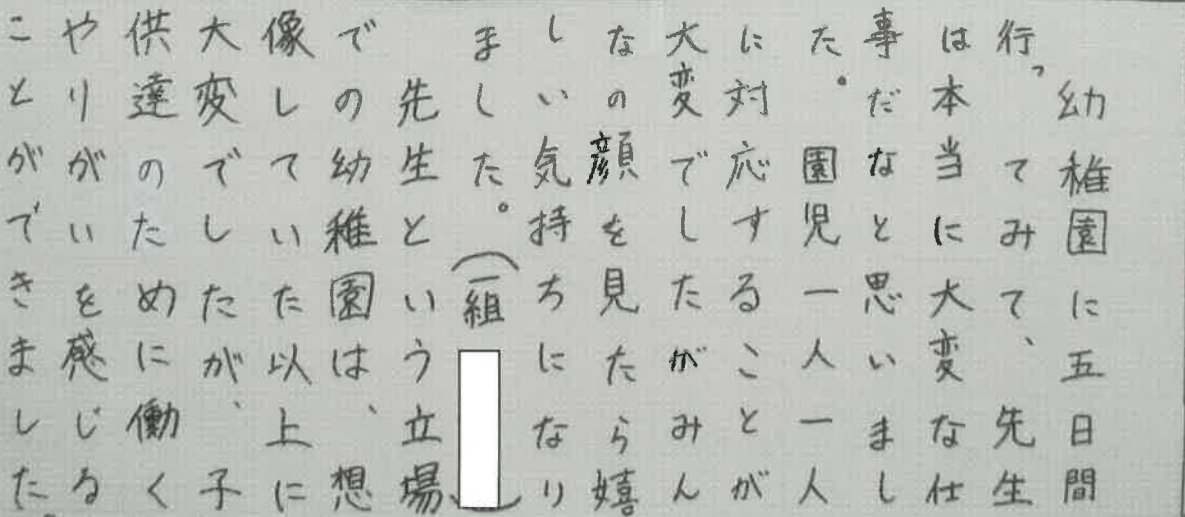 幼稚園に五日間
行ってみて、先生
は本当に大変な仕
事だなと思いまし
た。園児一人一人
に対応することが
大変でしたがみん
なの顔を見たら嬉
しい気持ちになり
ました。(一組)
先生という立場
での幼稚園は、想
像していた以上に
大変でしたが、子
供達のために働く
やりがいを感じる
ことができました。